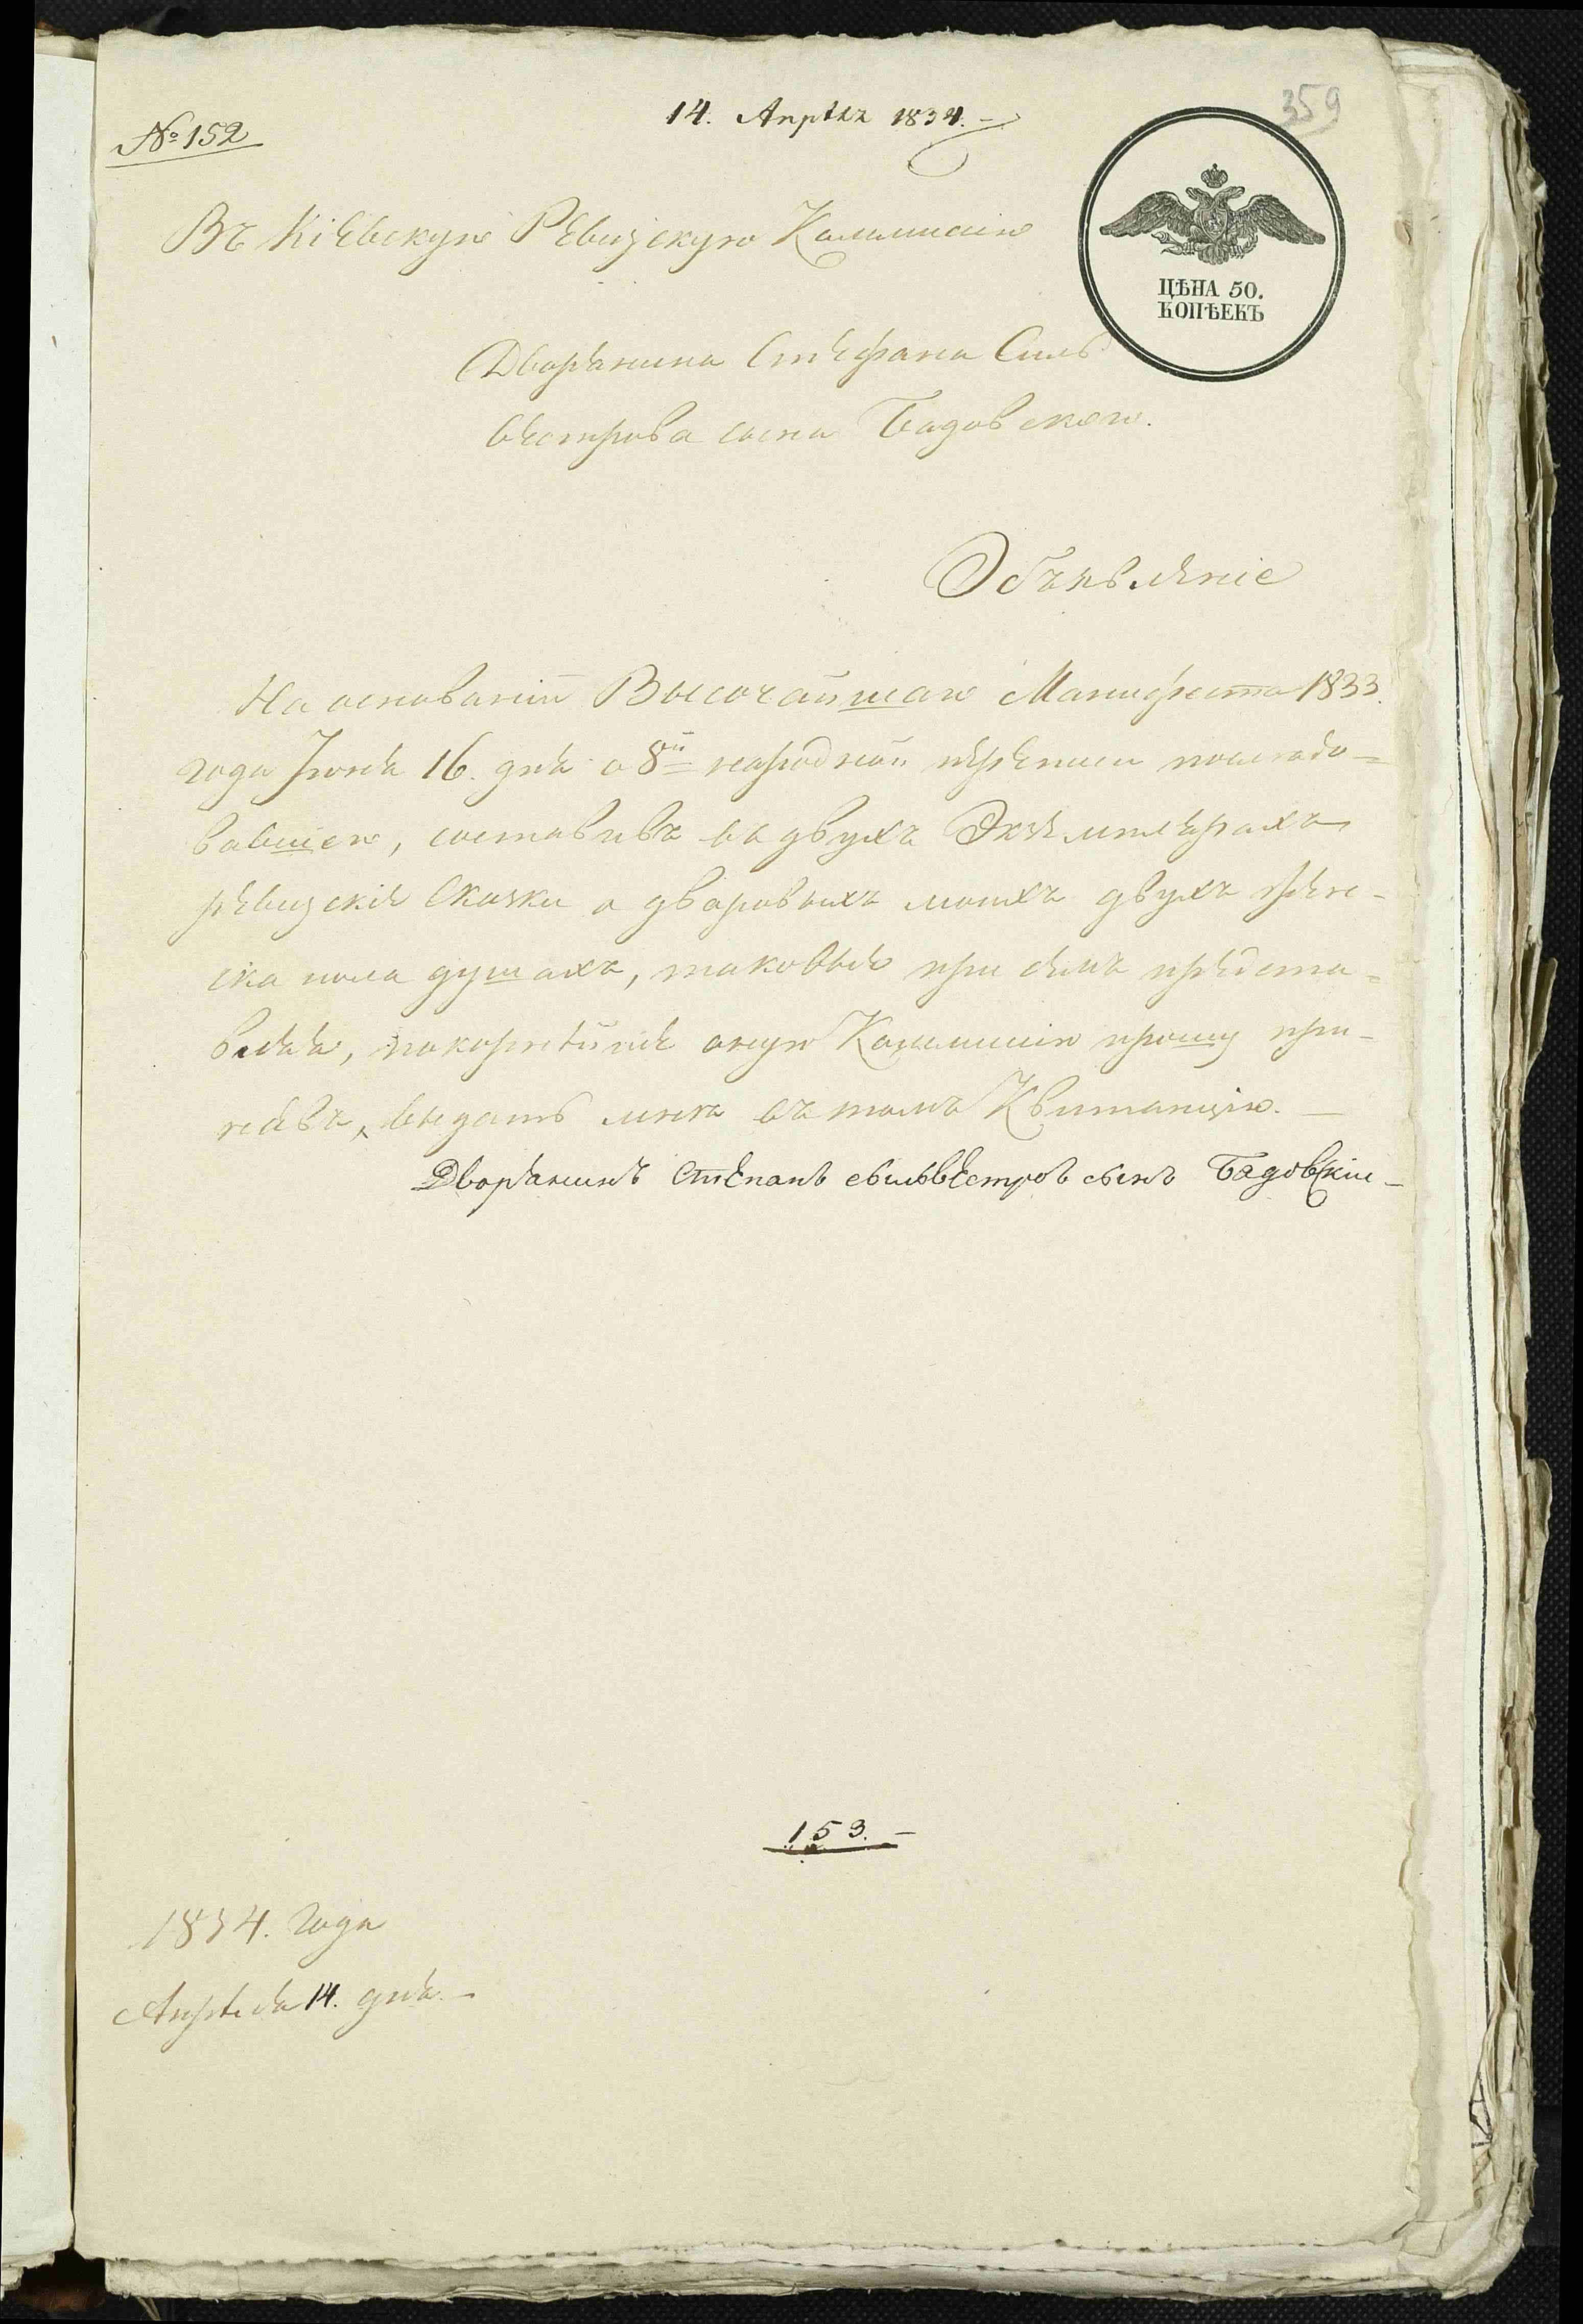 359
14. Апрѣля 1834.
№ 152
Въ Кіевскую Ревизскую Коммисію
ЦѢНА 50.
КОПѢЕКЪ
Дворянина Стефана Силь
вестрова сына Бадовского.
Объявленіе
На основаніи Высочайшаго Манифеста 1833.
года Іюня 16. дня о 8й народной переписи послѣдо-
вавшего, составивъ въ двухъ Экземплярахъ
ревизскіе Сказки о дворовыхъ моихъ двухъ женс-
ка пола душахъ, таковые при семъ предста-
вляя, покорнѣйше оную Коммисію прошу при-
нявъ, выдать мнѣ въ томъ Квитанцію. —
Дворянинъ Степанъ сильвестров сынъ Бадовскіи
153. —
1834. Года
Апрѣля 14. дня. —